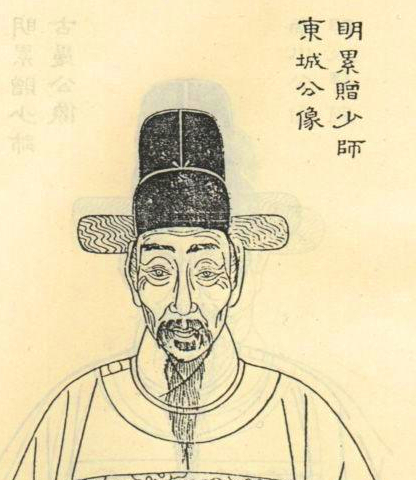 明累贈少師
東城公像